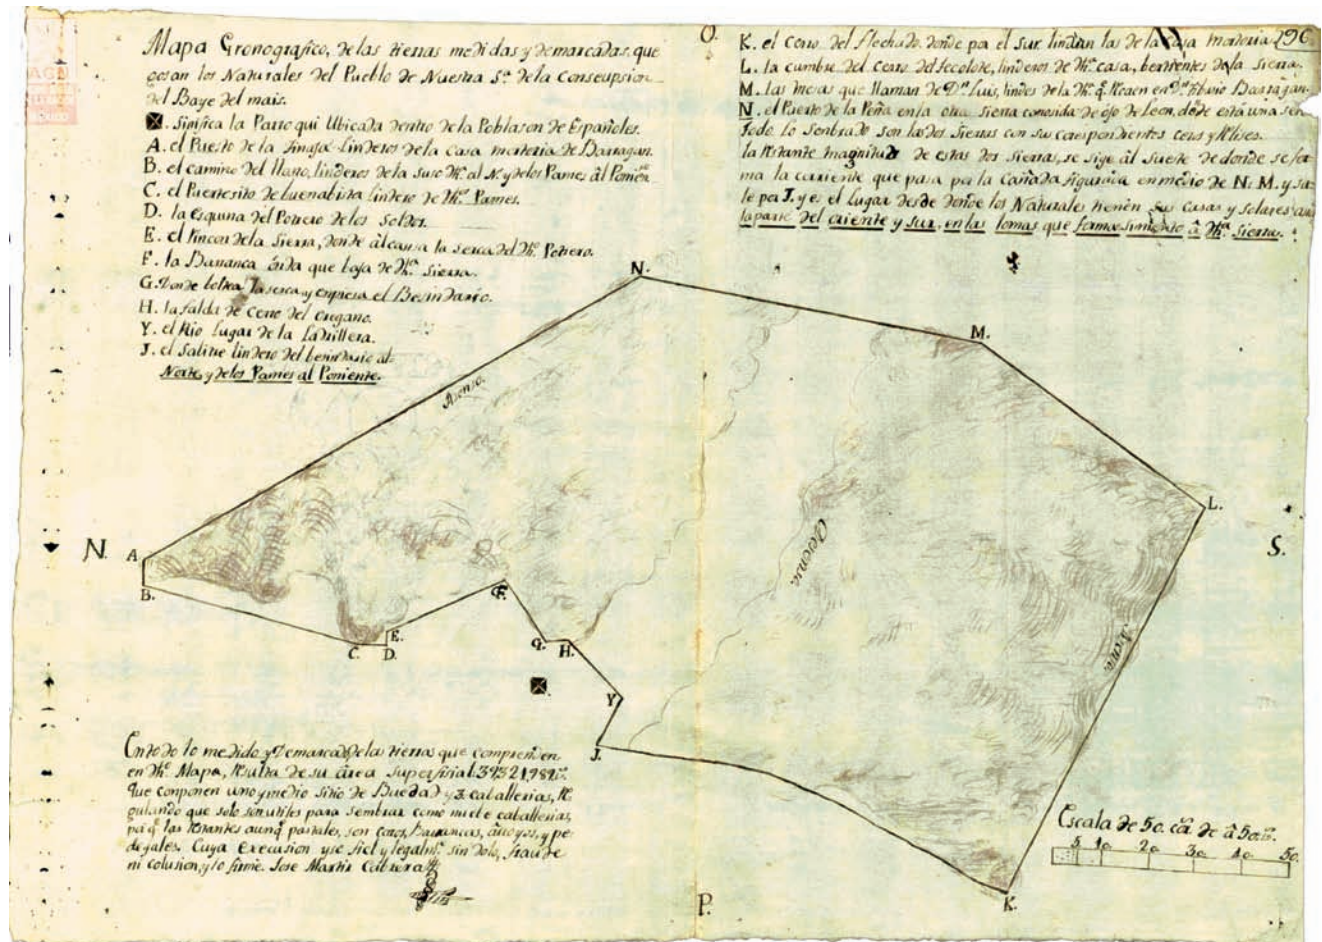 Mapa Gronografico, de las tierras medidas y demarcadas, que
gosan los Naturales del Pueblo de Nuestra Sª. de la Consepsion
del Baye del mais.
. Sinifica la Parroqui Ubicada dentro de la Poblason de Españoles.
A. el Puerto de la Linderos de la Casa mortoria de Barragan.
B. el camino del Llano, linderos de la suso dhª. al N. y de los Pames al Ponien
C. el Puertesito de buenabista lindero de dhos. Pames.
D. la esquina del Potrero de los Soldos.
E. el Rincon de la Sierra, donde alcansa la serca del dhº. Potrero.
F. la Barranca onda que baja de dhª. Sierra.
G. Donde boltea la serca y empiesa el Besindario.
H. la falda de Cerro del oregano.
Y. el Rio Lugar de la Ladrillera.
J. el Salitre lindero del besindario al
Norte, y de los Pames al Poniente.
O.
K. el Cerro del flechado, donde por el sur lindan las de la Casa mortoria
190
L. la cumbre del Cerro del tecolote, linderos de dhª. casa, bertientes de la Sierra.
M. las mesas que llaman de Dn. Luis, lindes de la dhª. q. Reaen en Dn. Barragan.
N. el Puerto de la Peña en la otra Sierra conosida de ojo de Leon, donde está una
Todo lo sonbrado son las dos Sierras con sus corespondientes
la Restante magnitud de estas dos sierras, se sige al Sueste de donde se for
ma la corriente que pasa por la Cañada figurada en medio de N. M. y sa
le por J. y es el Lugar desde donde los Naturales tienen sus casas y solares
la parte del oriente y sur, en las lomas que forma simiento â dhª. Sierra.
N.
M.
Asenso.
L.
Desenso.
N.
A
S.
B.
F.
E.
C. D.
G. H.
Asenso.
Y
J.
En todo lo medido y Demarcado, de la tierra que comprenden
en dhº. Mapa, Resulta de su area superfisial
que conponen uno y medio sitio de y 3. caballerias, Re
gulando que solo son utiles para sembrar como nuebe caballerias,
pa q. las Restantes aunq. pastales, son Cerros, Barrancas, arroyos, y pe
degales. Cuya Execusion yse fiel y legalmte. sin dolo, fraude
ni colusion, y lo firme. Jose Martin Cabrera
Escala de 50. de â 50.
5 10 20 30 40 50
K.
P.